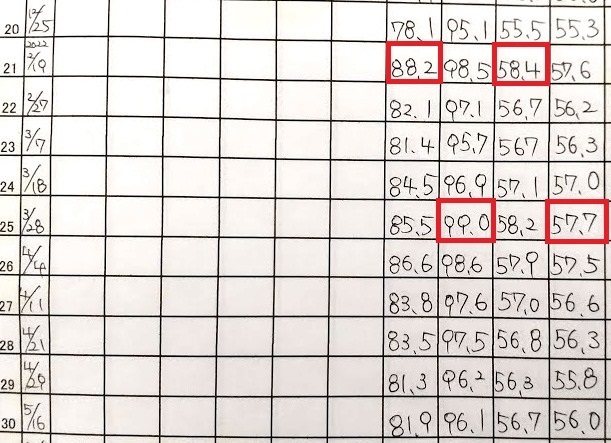 20 12/25 78.1 95.1 55.5 55.3
21 2022 2/19 88.2 98.5 58.4 57.6
22 2/27 82.1 97.1 56.7 56.2
23 3/7 81.4 95.7 567 56.3
24 3/18 84.5 96.9 57.1 57.0
25 3/28 85.5 99.0 58.2 57.7
26 4/4 86.6 98.6 57.9 57.5
27 4/11 83.8 97.6 57.0 56.6
28 4/21 83.5 97.5 56.8 56.3
29 4/29 81.3 96.2 56.3 55.8
30 5/16 81.9 96.1 56.7 56.0